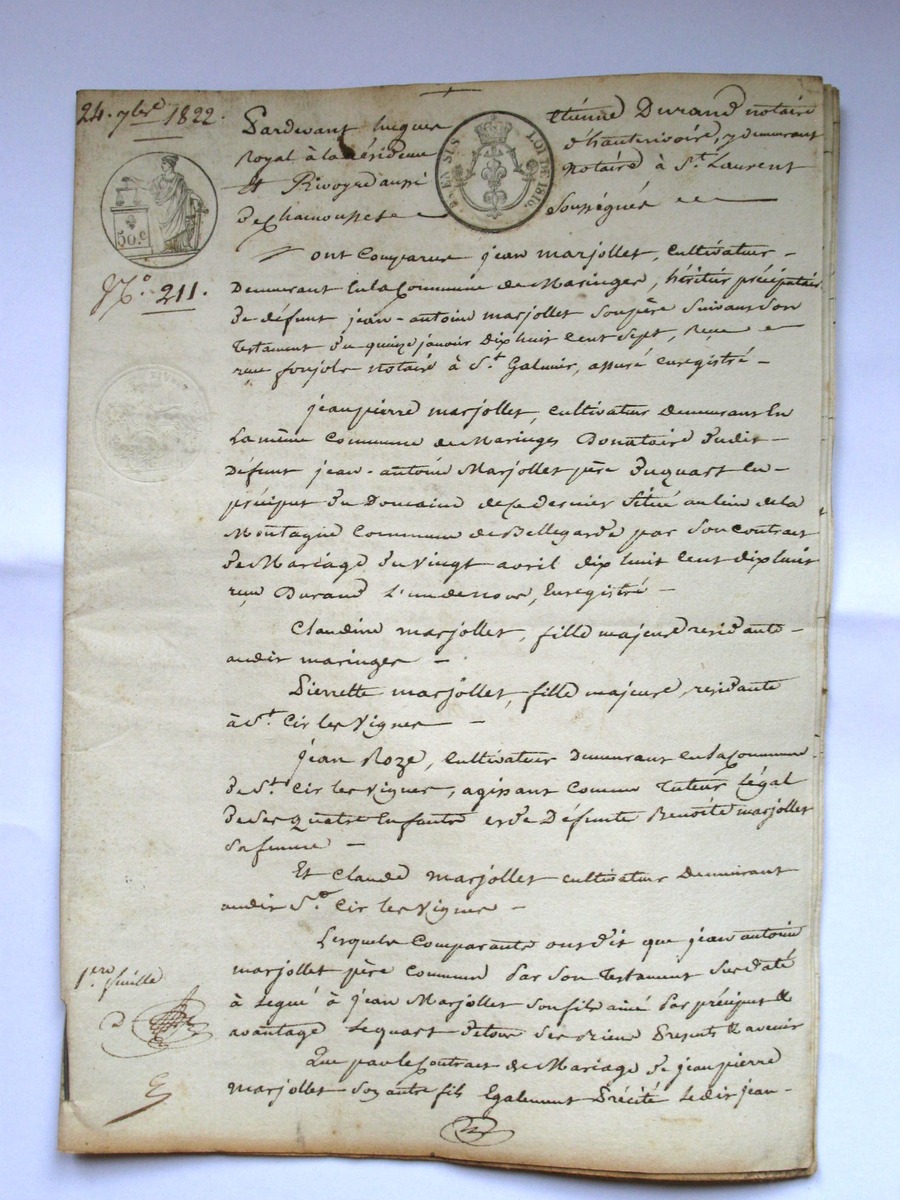 24. 7bre 1822.
Pardevant hugue étienne Durand notaire
royal à la résidence d'hauterivoire, y demeurant
& Rivoyre aussi notaire à St. Laurent
de chamousset soussignés
EN SUS LOI DE 1816.
50.c
No. 211.
ont comparus jean marjollet, cultivateur
Demeurant en la Commune de Maringes, héritier précipuaire
de défunt jean-antoine marjollet son père suivant son
testament du quinze janvier dix huit cent sept, reçu
notaire à St. Galmier, assuré enregistré –
jean pierre marjollet, cultivateur demeurant en
la même commune de Maringes Donataire dudit –
Défunt jean-antoine Marjollet père du quart en –
préciput du Domaine de ce dernier situé au lieu de la
Montagne Commune de Bellegarde par son contract
de Mariage du vingt avril dix huit cent dix huit
reçu Durand l'un de nous, Enregistré –
Claudine marjollet, fille majeure residante –
audit maringes –
Pierrette marjollet, fille majeure, residante
à St. Cir les Vignes –
jean Roze, Cultivateur demeurant en la Commune
de St. Cir les Vignes, agissant comme tuteur légal
de ses quatre Enfants et de Défunte Benoite marjollet
sa femme –
Et Claude marjollet cultivateur Demeurant
audit St. Cir les Vignes –
Lesquels Comparants ont dit que jean antoine
marjollet père commun par son testament susdaté
à legué à jean Marjollet son fils ainé par préciput &
avantage le quart de tous ses biens présents & avenir
Que par le Contract de Mariage de jean pierre
marjollet son autre fils également précité ledit jean-
1ere feuille